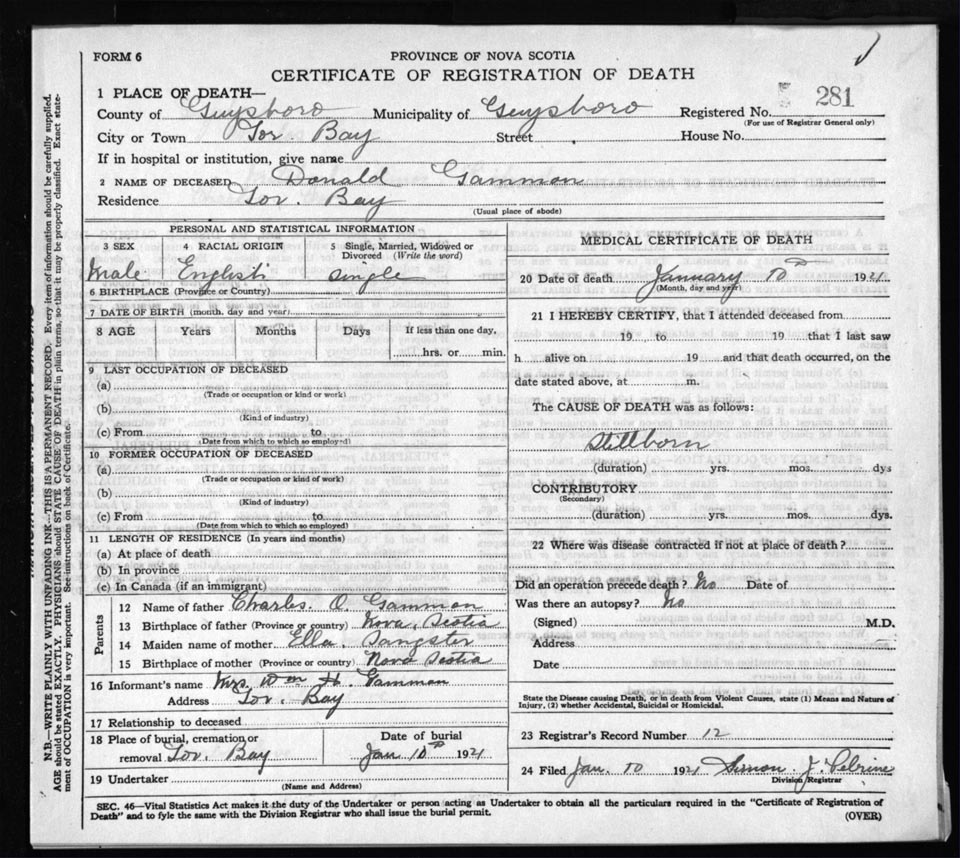 FORM 6
PROVINCE OF NOVA SCOTIA
CERTIFICATE OF REGISTRATION OF DEATH
1 PLACE OF DEATH—
County of Guysboro Municipality of Guysboro Registered No. 281
(For use of Registrar General only)
City or Town Tor Bay Street House No.
If in hospital or institution, give name
2 NAME OF DECEASED Donald Gammon
Residence Tor. Bay
(Usual place of abode)
PERSONAL AND STATISTICAL INFORMATION
3 SEX 4 RACIAL ORIGIN 5 Single, Married, Widowed or Divorced (Write the word)
Male English single
6 BIRTHPLACE (Province or Country)
7 DATE OF BIRTH (month, day and year)
8 AGE Years Months Days If less than one day,
hrs. or min.
9 LAST OCCUPATION OF DECEASED
(a)
(Trade or occupation or kind or work)
(b)
(Kind of industry)
(c) From to
(Date from which to which so employed)
10 FORMER OCCUPATION OF DECEASED
(a)
(Trade or occupation or kind of work)
(b)
(Kind of industry)
(c) From to
(Date from which to which so employed)
11 LENGTH OF RESIDENCE (In years and months)
(a) At place of death
(b) In province
(c) In Canada (if an immigrant)
Parents
12 Name of father Charles. O. Gammon
13 Birthplace of father (Province or country) Nova. Scotia
14 Maiden name of mother Ella. Sangster
15 Birthplace of mother (Province or country) Nova Scotia
16 Informant's name Mrs. Wm H. Gammon
Address Tor. Bay
17 Relationship to deceased
18 Place of burial, cremation or removal Tor. Bay Date of burial Jan 10th 1921
19 Undertaker
(Name and Address)
MEDICAL CERTIFICATE OF DEATH
20 Date of death January 10th 1921
(Month, day and year)
21 I HEREBY CERTIFY, that I attended deceased from
19 to 19 that I last saw
h alive on 19 and that death occurred, on the
date stated above, at m.
The CAUSE OF DEATH was as follows:
Stillborn
(duration) yrs. mos. dys
CONTRIBUTORY
(Secondary)
(duration) yrs. mos. dys.
22 Where was disease contracted if not at place of death?
Did an operation precede death? No Date of
Was there an autopsy? No
(Signed) M.D.
Address
Date
State the Disease causing Death, or in death from Violent Causes, state (1) Means and Nature of
Injury, (2) whether Accidental, Suicidal or Homicidal.
23 Registrar's Record Number 12
24 Filed Jan. 10 1921 Simon J. Pelrine
Division Registrar
SEC. 46—Vital Statistics Act makes it the duty of the Undertaker or person acting as Undertaker to obtain all the particulars required in the "Certificate of Registration of
Death" and to fyle the same with the Division Registrar who shall issue the burial permit.
(OVER)
N.B.—WRITE PLAINLY WITH UNFADING INK—THIS IS A PERMANENT RECORD. Every item of information should be carefully supplied.
AGE should be stated EXACTLY. PHYSICIANS should STATE CAUSE OF DEATH in plain terms, so that it may be properly classified. Exact statement of OCCUPATION is very important. See instructions on back of Certificate.